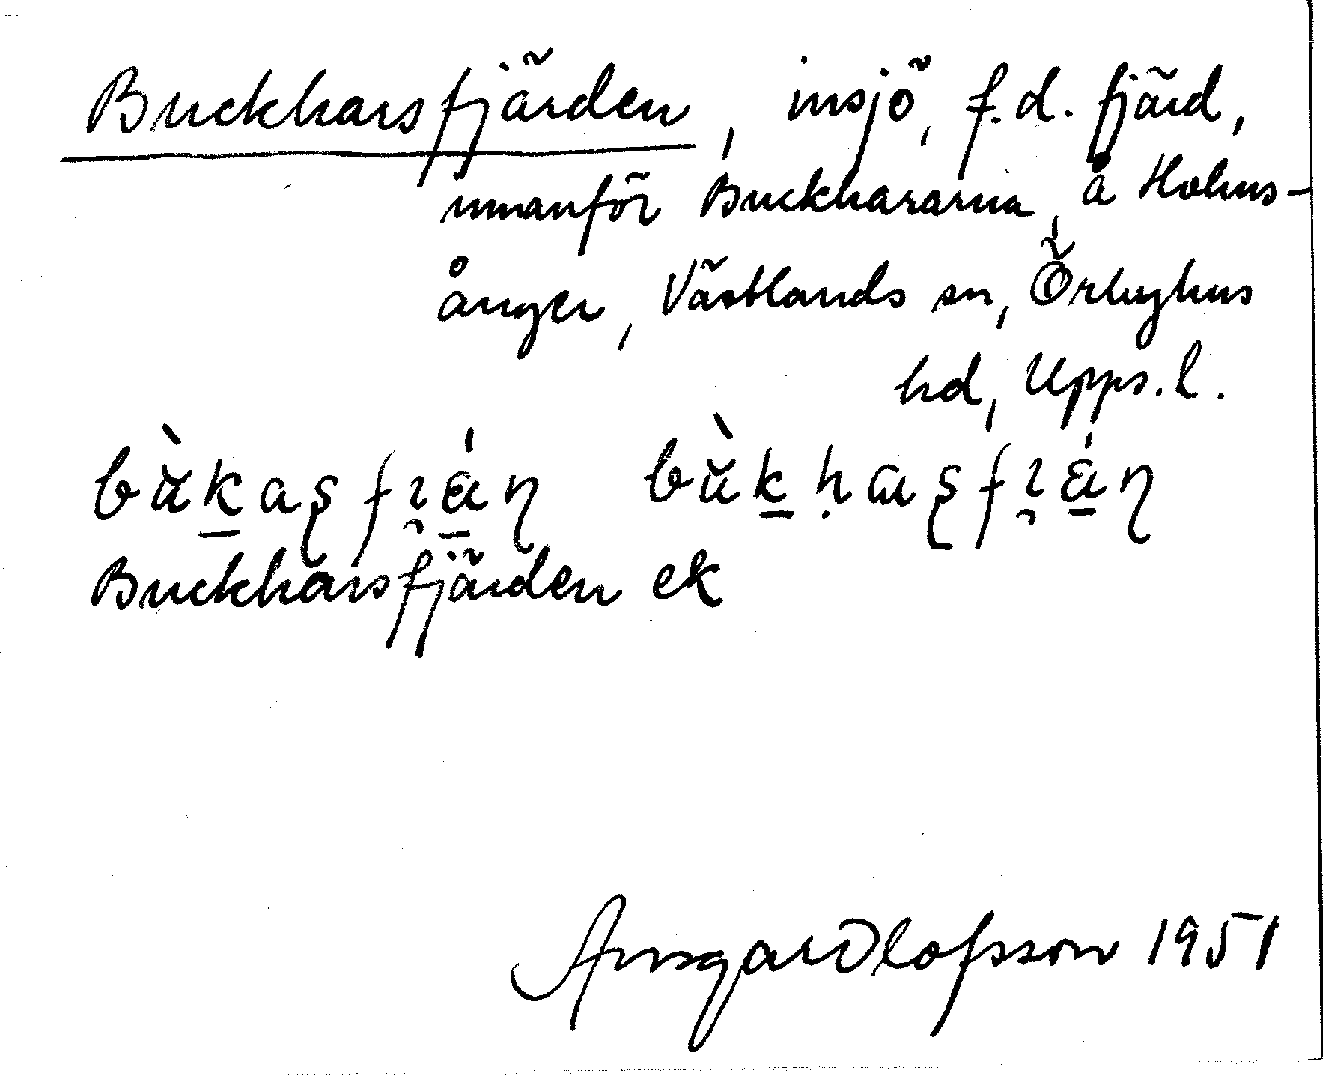 Buckharsfjärden, insjö, f.d. fjärd,
innanför Buckhararna, å Holms-
ånger, Västlands sn, Örbyhus
hd, Upps. l.
Buckharsfjärden ek
Ansgar Olofsson 1951